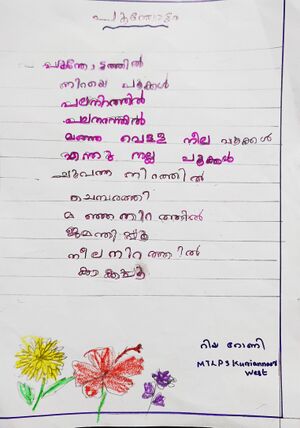 പൂന്തോട്ടം
പൂന്തോട്ടത്തിൽ
നിറയെ പൂക്കൾ
പലനിറത്തിൽ
പലതരത്തിൽ
മഞ്ഞ വെള്ള നീല പൂക്കൾ
എന്തു നല്ല പൂക്കൾ
ചുവന്ന നിറത്തിൽ
ചെമ്പരത്തി
മഞ്ഞനിറത്തിൽ
ജമന്തിപ്പൂ
നീലനിറത്തിൽ
കാക്കപ്പൂ
റിയ റോണി
MTLPS Kuriannoor
West